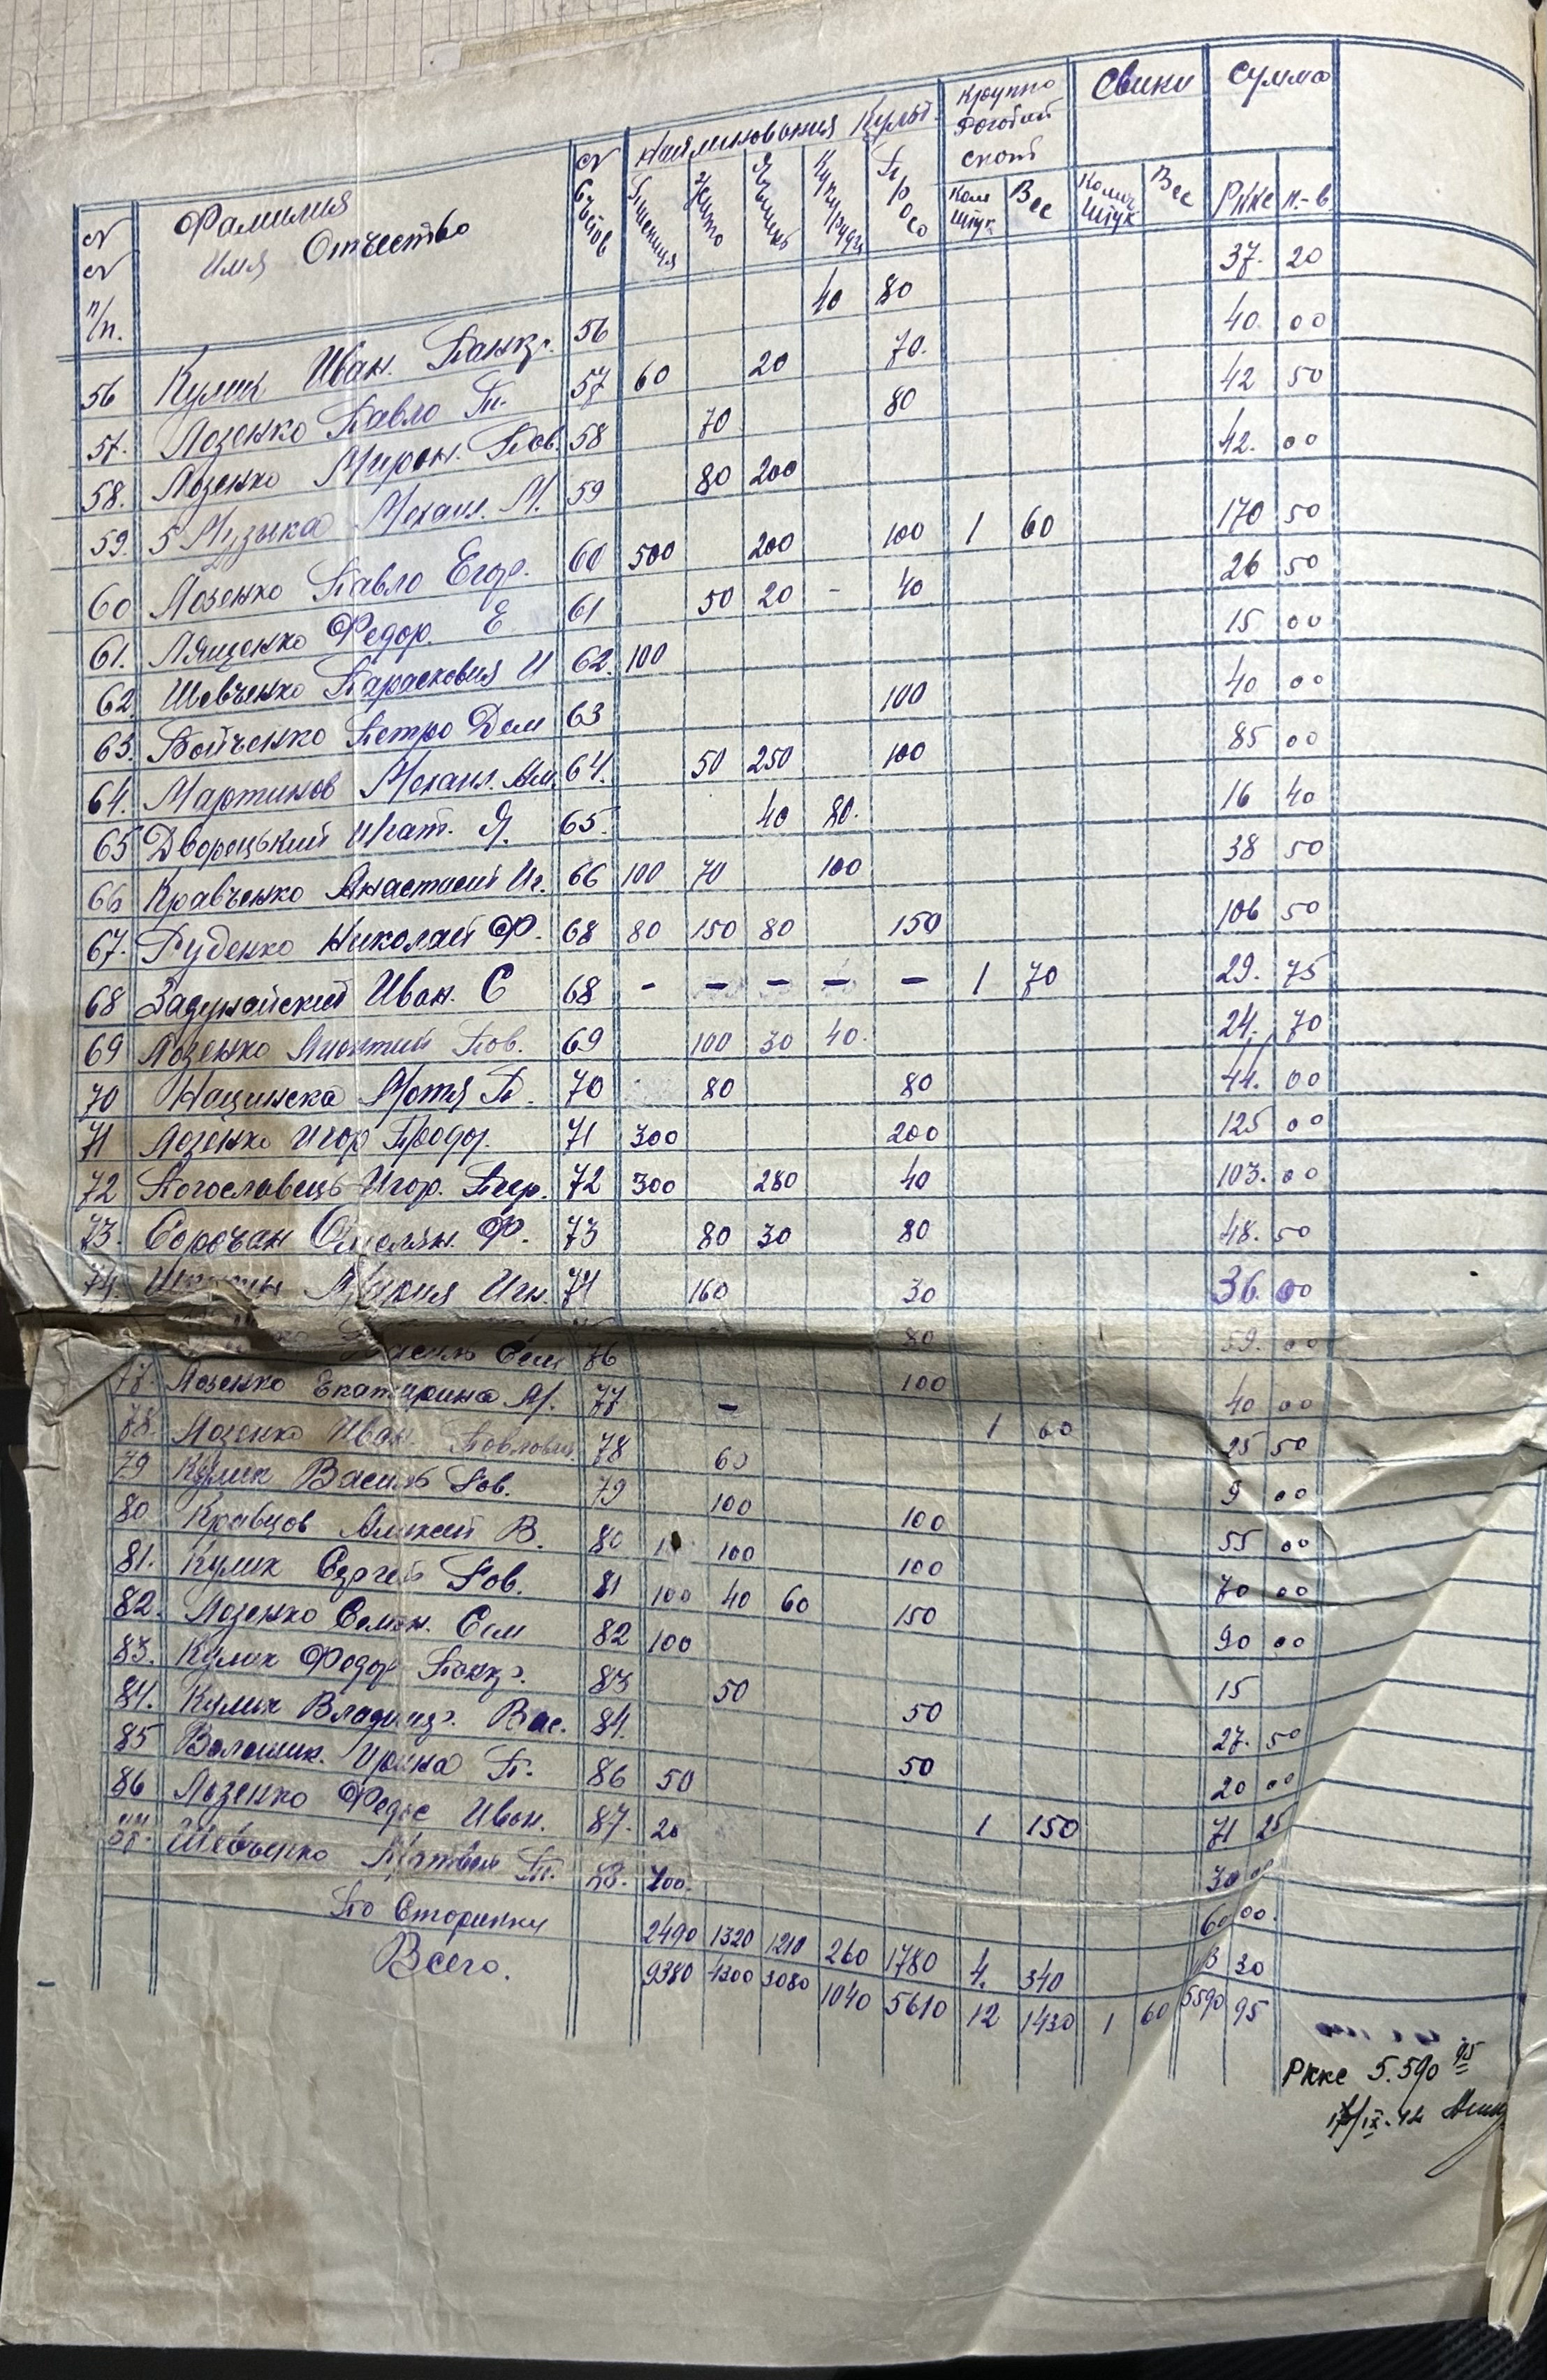 № № п/п. Фамилия Имя Отчество № Счетов Наяминовония Культ. Крупно Рогатий скот Свини Сумма
Пшениця Жито Ячмень Кукурудз Просо Кол Штук Вес Колич Штук Вес Ркке к.-в
56 Кулик Иван. Панкр. 56 40 80 37. 20
57. Лозенко Павло П. 57 60 20 70. 40. 00
58. Лозенко Мирон. Пав. 58 70 80 42 50
59. Музыка Механ. М. 59 80 200 42. 00
60 Лозенко Павло Егор. 60 500 200 100 1 60 170 50
61. Лященко Федор. Е 61 50 20 - 40 26 50
62 Шевченко Парасковия И 62. 100 15 00
63. Бойченко Петро Дем 63 100 40 00
64. Мартинов Механ. 64. 50 250 100 85 00
65 Дворецький Игнат. Я. 65. 40 80. 16 40
66 Кравченко Анастасий Иг. 66 100 70 100 38 50
67. Руденко Николай Ф. 68 80 150 80 150 106 50
68 Задунайский Иван. С 68 - - - - - 1 70 29. 75
69 Лозенко Лионтий Пов. 69 100 30 40. 24. 70
70 Нацинска Мотя П. 70 80 80 44. 00
71 Лозенко Игор Продор. 71 300 200 125 00
72 Погославець Игор. 72 300 280 40 103. 00
73. Сорочан Омелян. Ф. 73 80 30 80 48. 50
74. Мария Игн. 74 160 30 36. 00
Василь Сем 76 80 59. 00
77. Лозенко Екатирина М. 77 - 100 40 00
78. Лозенко Иван. Повлович. 78 60 1 60 25 50
79 Кулик Василь Пов. 79 100 9 00
80 Кравцов Алексей В. 80 100 100 55 00
81. Кулик Сергей Пов. 81 100 40 60 100 70 00
82. Лозенко Семен. Сем 82 100 150 90 00
83. Кулик Федор Панкр. 83 50 15
84. Кулик Владимир. Вас. 84. 50 27. 50
85 Волошин. Ирина П. 86 50 50 20 00
86 Лозенко Федос Иван. 87. 20 1 150 71 25
Шевченко Матвей П. 88. 200. 30 00
По Сторинки 2490 1320 1210 260 1780 4. 340 30
Всего. 9380 4200 3080 1040 5610 12 1430 1 60 5590 95
Ркке 5.590 95
17/IX.42